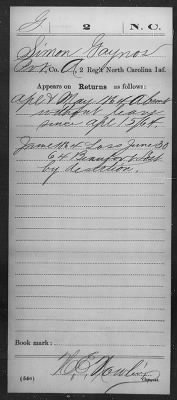 G 2 N.C.
Simon Gaynor
Pvt., Co. A, 2 Reg't North Carolina Inf.
Appears on Returns as follows:
Apl & May 1864 Absent
without leave
since Apl 15/64.
June 1864 Loss June 30
64 Beaufort
by desertion.
Book mark:
(546) Copyist.